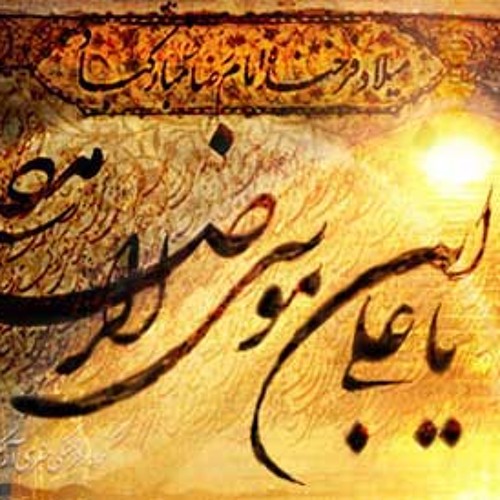 میلاد فرخنده امام رضا مبارکباد
یا علی ابن موسی الرضا مدد